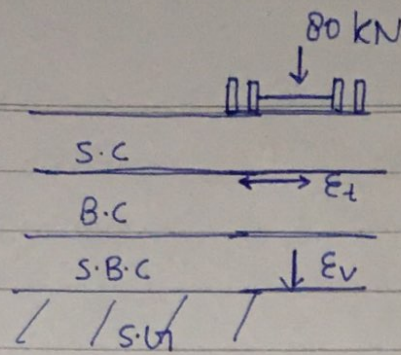 80 KN
S.C
εt
B.C
S.B.C
εv
S.G